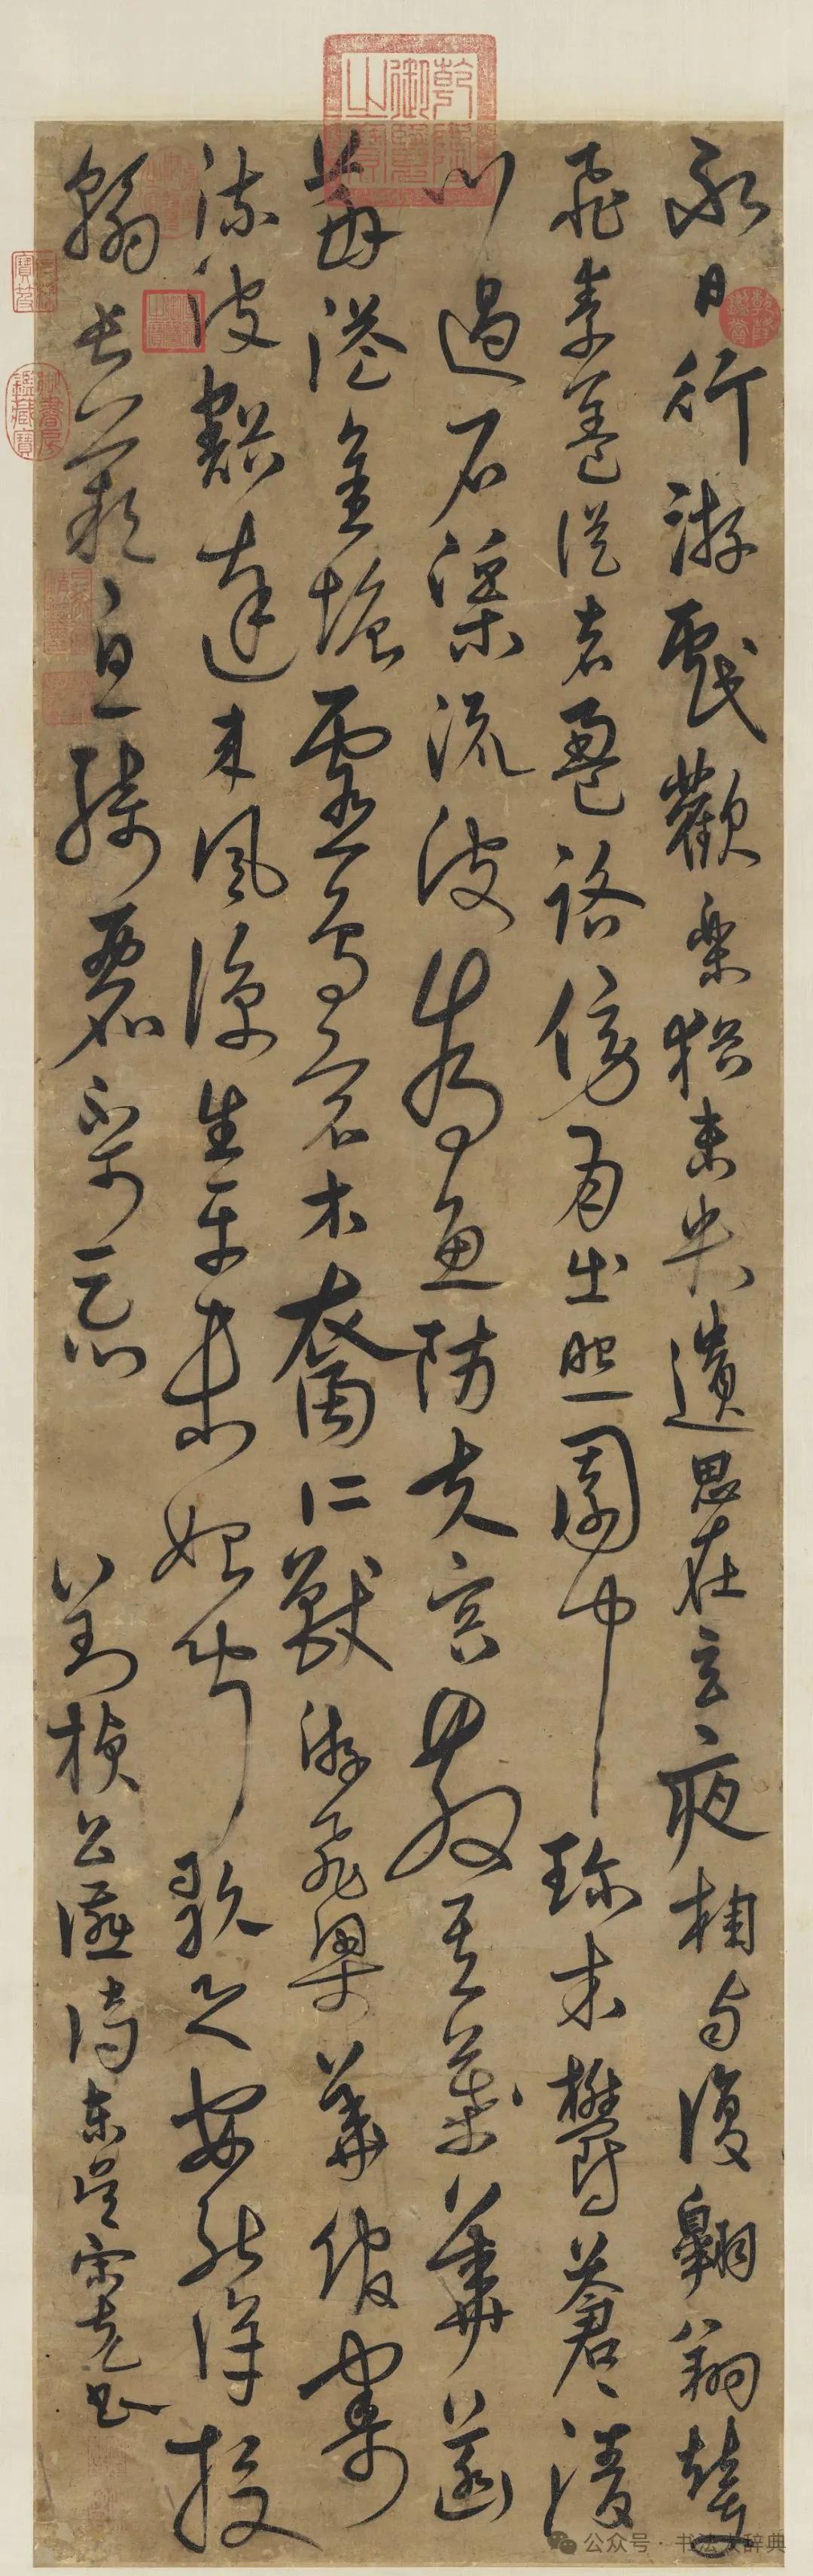 永日行游戲歡樂猶未央遺思在玄夜相與復翱翔輦
飛素蓋從者盈路傍月出照園中珍木鬱蒼蒼清
川過石渠流波為魚防芙蓉散其華菡
萏溢金塘靈鳥宿水裔仁獸游飛梁華館寄
流波豁達來風涼生平未始聞歌之安能詳投
翰長嘆息綺麗不可忘 劉楨公讌詩東吳宋克書
乾隆御覽之寶
公众号·书法大辞典